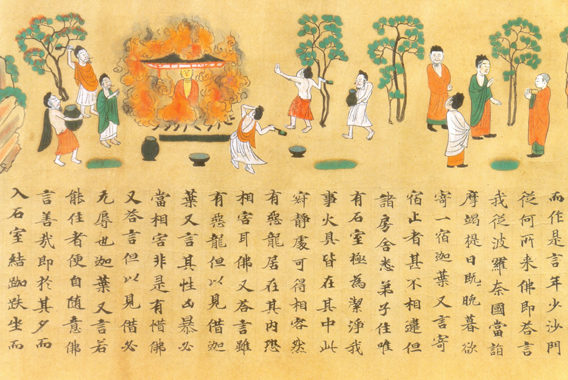 而作是言年少沙門
從何所来佛即荅言
我從波羅奈國當詣
摩竭提日既晩暮欲
寄一宿迦葉又言寄
宿止者甚不相違但
諸房舍悉弟子住唯
有石室極為潔淨我
事火具皆在其中此
寂静處可得相容然
有惡龍居在其内恐
相害耳佛又荅言雖
有惡龍但以見借迦
葉又言其性凶暴必
當相害非是有惜佛
又荅言但以見借必
无辱也迦葉又言若
能住者便自随意佛
言善哉即於其夕而
入石室結跏趺坐而